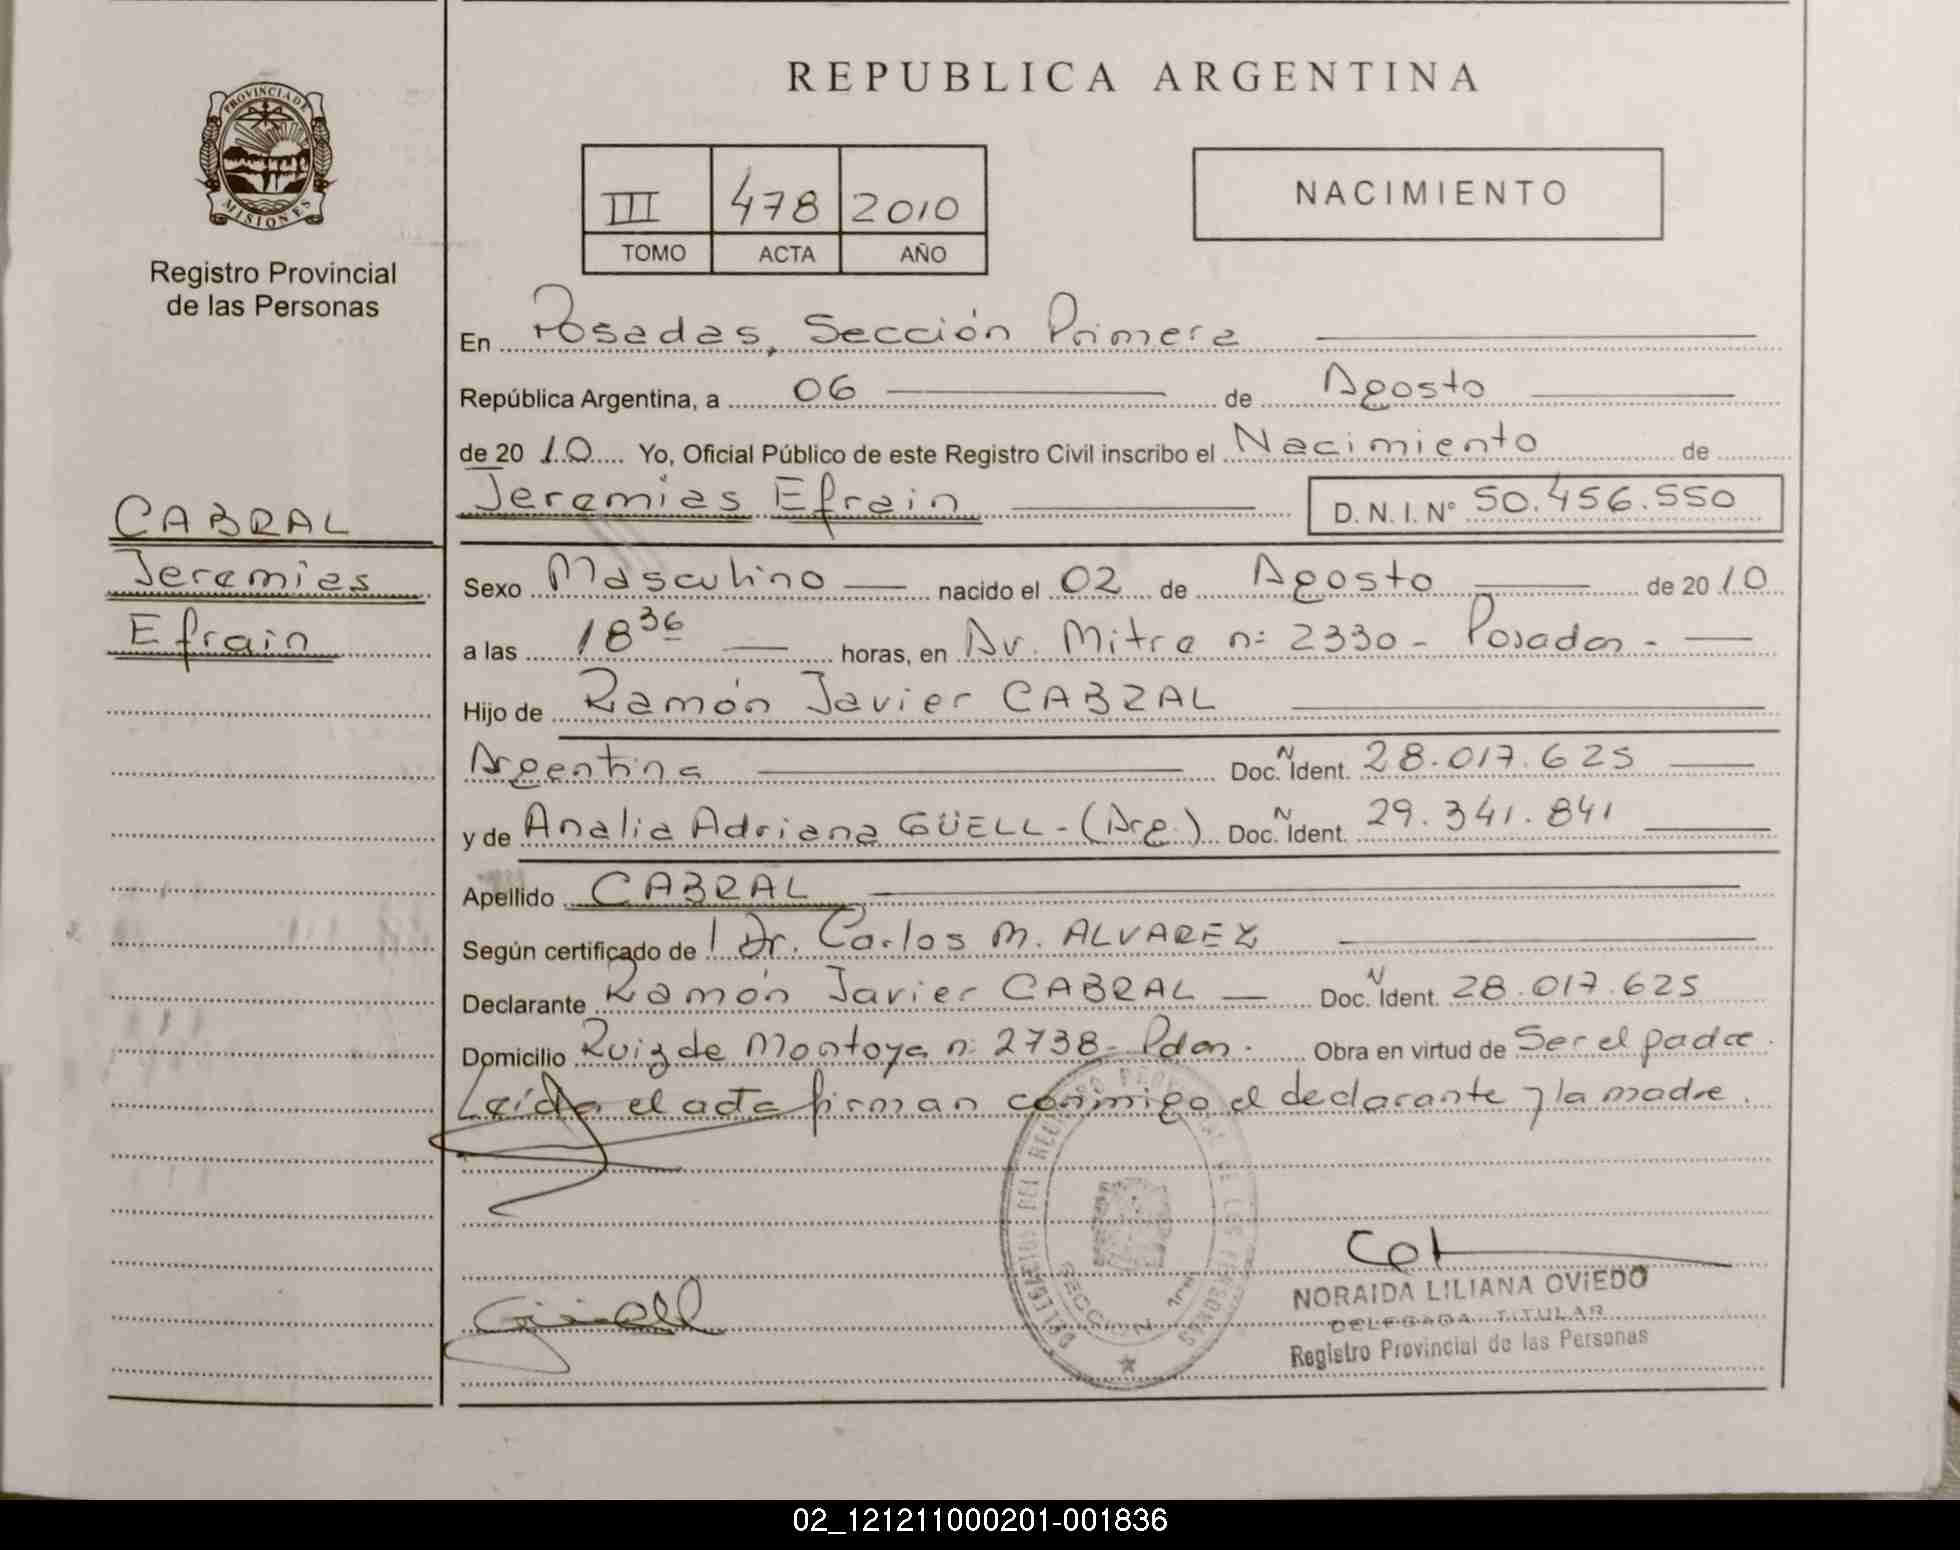 PROVINCIA DE
MISIONES
Registro Provincial
de las Personas
CABRAL
Jeremias
Efrain
REPUBLICA ARGENTINA
III 478 2010
TOMO ACTA AÑO
NACIMIENTO
En Posadas, Sección Primera
República Argentina, a 06 de Agosto
de 2010 Yo, Oficial Público de este Registro Civil inscribo el Nacimiento de
Jeremias Efrain D. N. I. N° 50.456.550
Sexo Masculino nacido el 02 de Agosto de 2010
a las 18 36 horas, en Av. Mitre nº 2330 - Posadas -
Hijo de Ramón Javier CABRAL
Argentina Doc. N Ident. 28.017.625
y de Analia Adriana GÜELL - (Arg.) Doc. N Ident. 29.341.841
Apellido CABRAL
Según certificado de Dr. Carlos M. ALVAREZ
Declarante Ramón Javier CABRAL Doc. N Ident. 28.017.625
Domicilio Ruiz de Montoya n: 2738 - Pdas. Obra en virtud de Ser el padre.
Leída el acta firman conmigo el declarante y la madre.
SECCION 1ra
Güell
NORAIDA LILIANA OVIEDO
DELEGADA TITULAR
Registro Provincial de las Personas
02_121211000201-001836